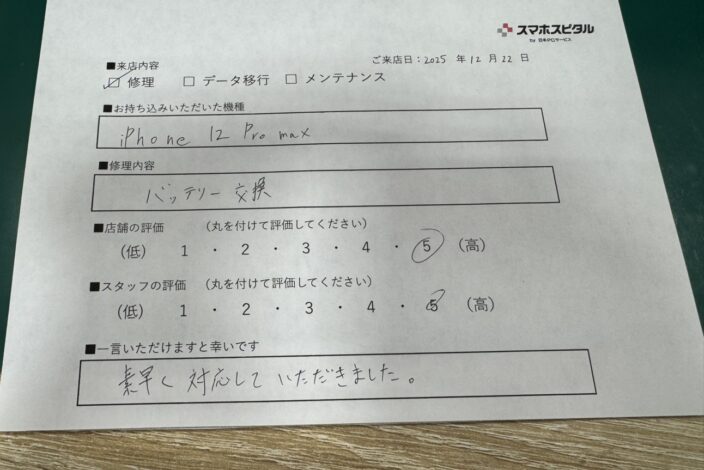 スマホスピタル
by 日本PCサービス
ご来店日：2025 年 12 月 22 日
■来店内容
☑ 修理 □ データ移行 □ メンテナンス
■お持ち込みいただいた機種
iPhone 12 Pro max
■修理内容
バッテリー交換
■店舗の評価 （丸を付けて評価してください）
（低） 1 ・ 2 ・ 3 ・ 4 ・ 5 （高）
■スタッフの評価 （丸を付けて評価してください）
（低） 1 ・ 2 ・ 3 ・ 4 ・ 5 （高）
■一言いただけますと幸いです
素早く対応していただきました。